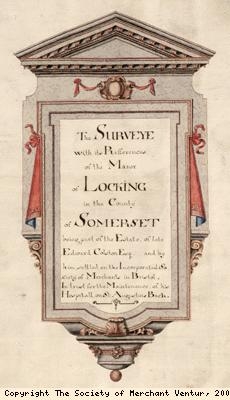 The SURVEYE
with its References
of the Manor
of LOCKING
in the County
of SOMERSET
being part of the Estate, of late
Edward Colston Esq. and by
him settled on the Incorporated So
ciety of Merchants in Bristol,
In trust for the Maintenance, of his
Hospitall on St Augustins Back.
Copyright The Society of Merchant Ventur, 200